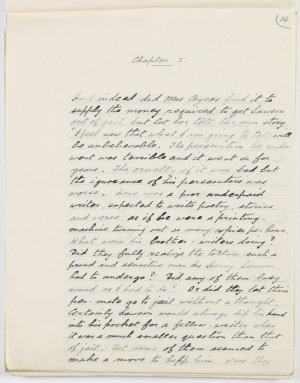 14
Chapter 2.
Hard indeed did Mrs Byers find it to
supply the money required to get Lawson
out of jail but let her tell her own story.
"I feel now that what I am going to tell will
be unbelievable. The persecution he under
went was terrible and it went on for
years. The cruelty of it was bad but
the ignorance of his persecutors was
worse. Here was a poor underpaid
writer expected to write poetry, stories,
and verse as if he were a printing-
machine turning out so many copies per hour.
What were his brother-writers doing?
Did they fully realize the torture such a
proud and sensitive man as Henry Lawson
had to undergo? Did any of them body
round as I had to do? Or did they let their
pen-mate go to jail without a thought.
Certainly Lawson would always dip his hand
into his pocket for a fellow-writer when
it was a much smaller question than that
of jail. Yet none of them seemed to
make a move to help him. Were they